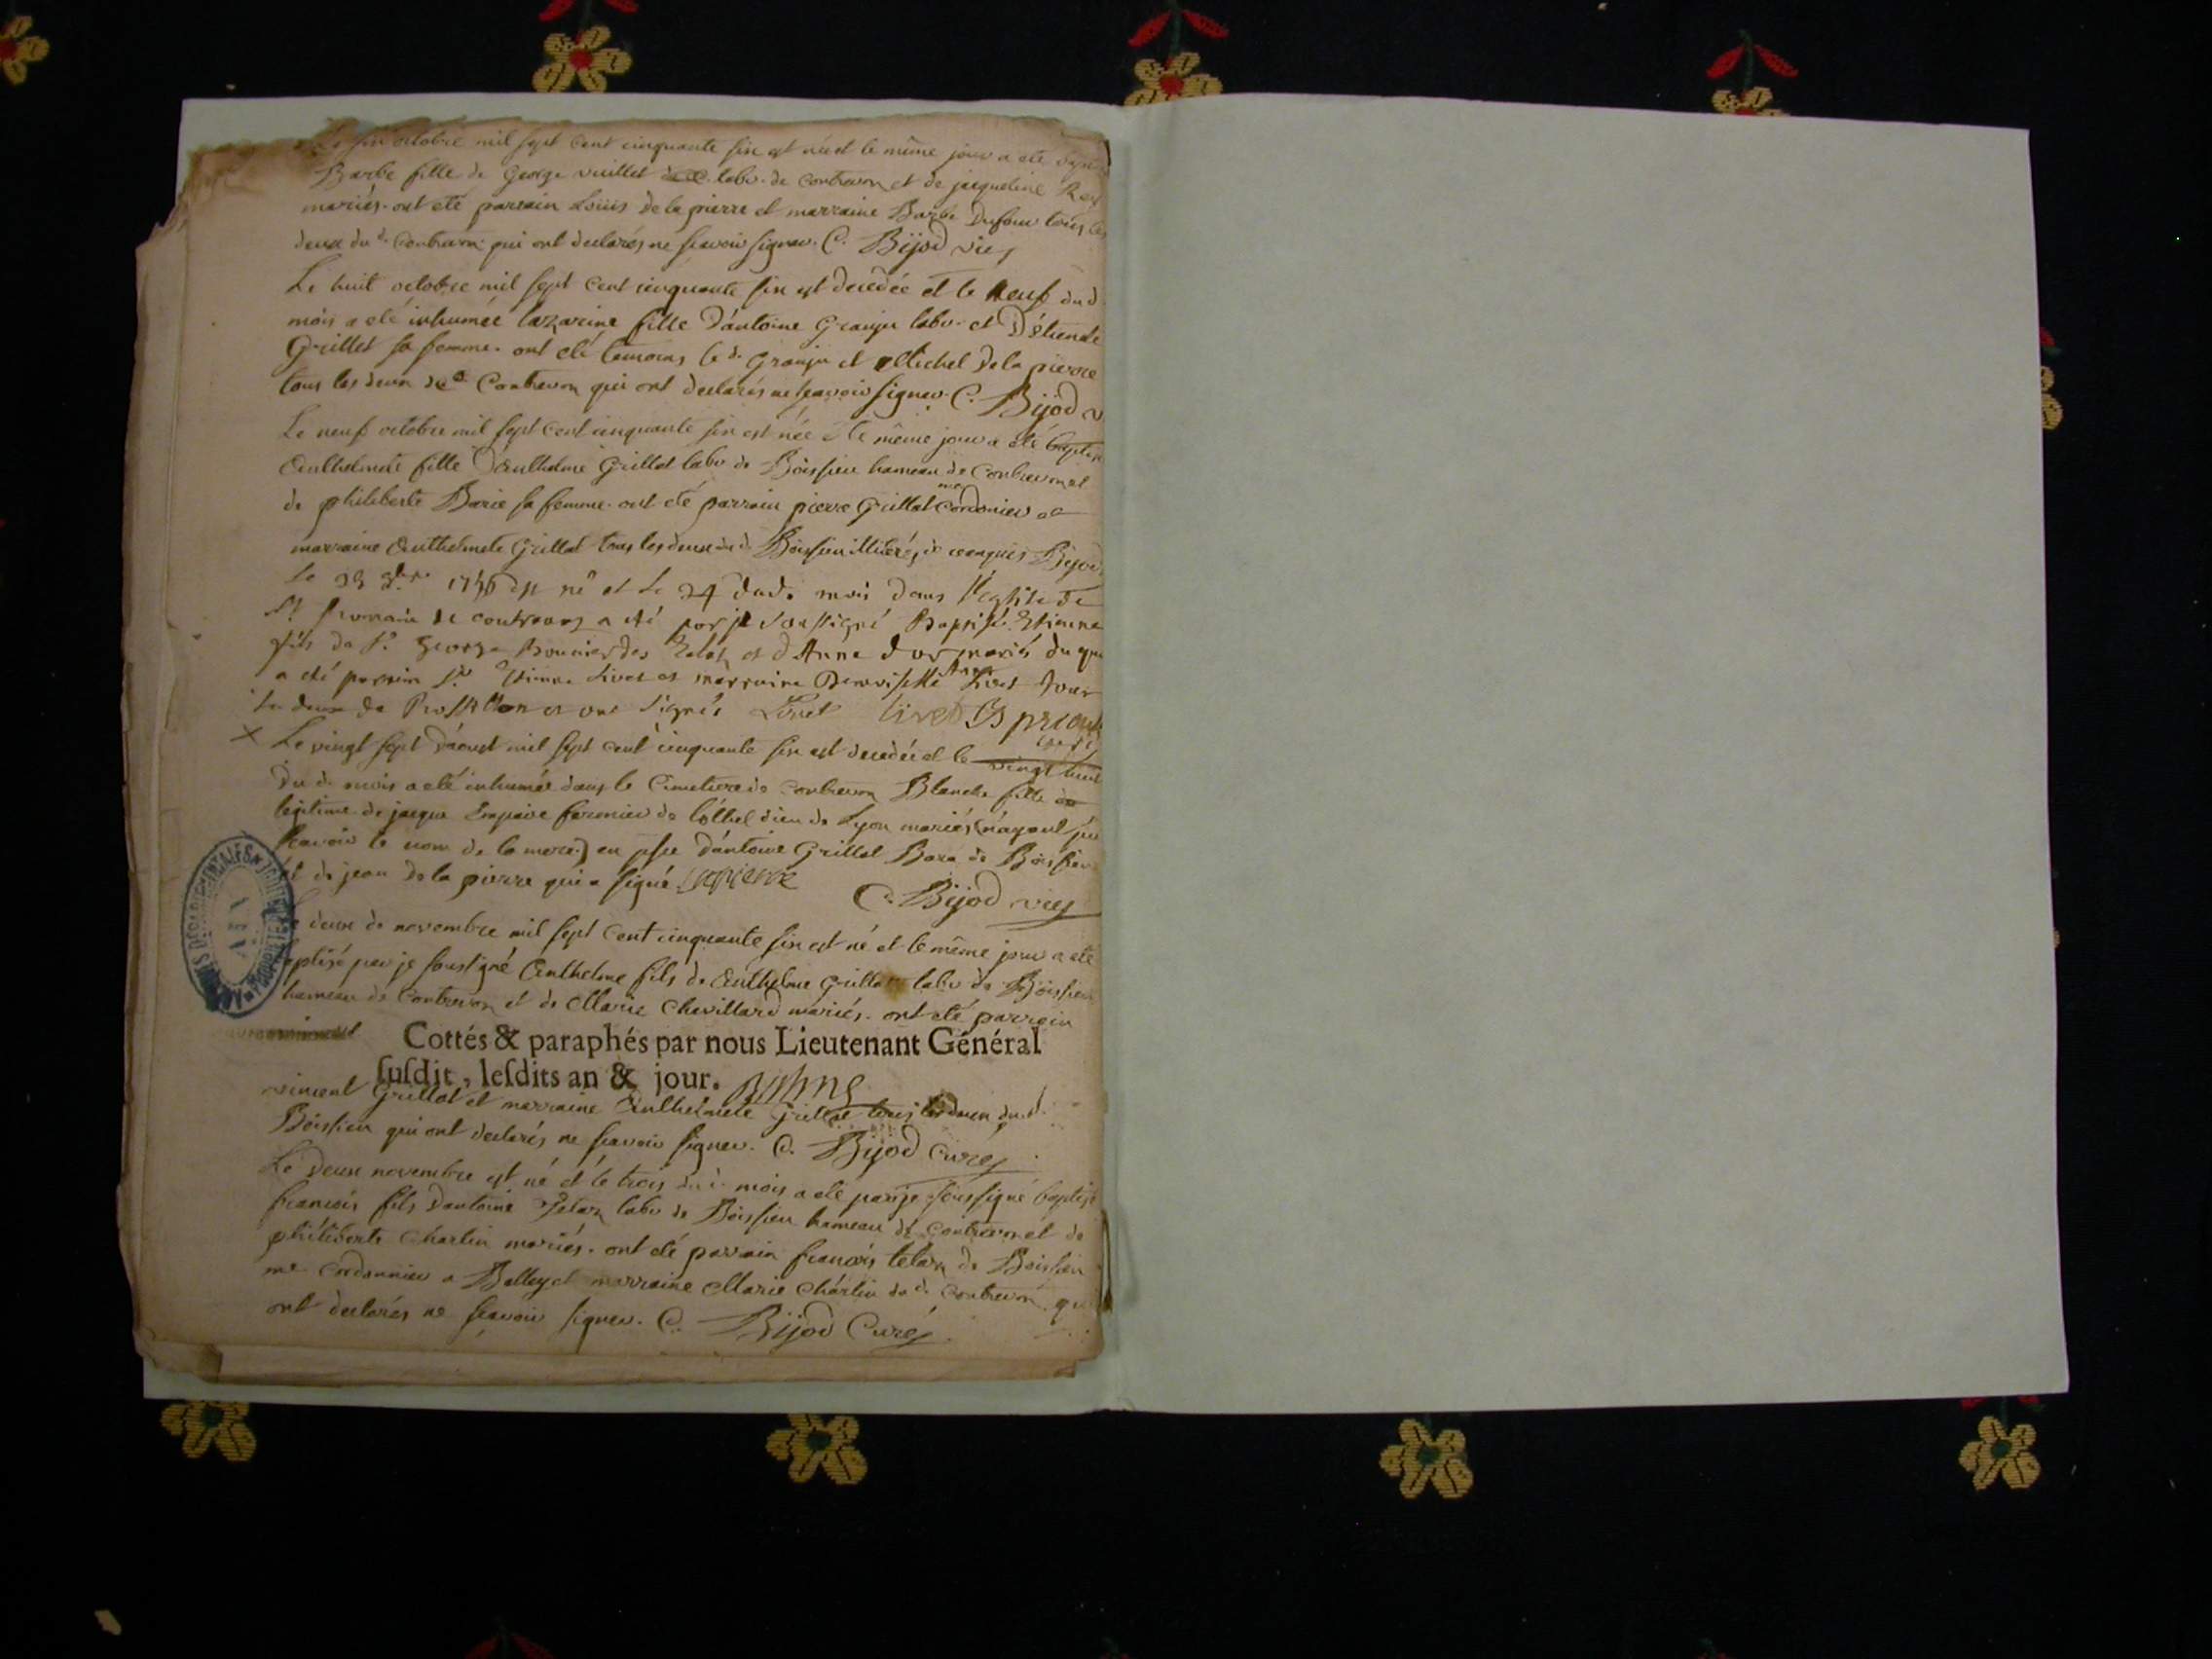 Le six octobre mil sept cent cinquante six est née et le même jour a eté
Barbe fille de George vuillet labr. de contrevoz et de jacqueline
mariés. ont eté parrain Loüis de la pierre et marraine Barbe Dufour tous les
deux dud. Contrevoz qui ont declarés ne scavoir signer. C. Bijod vic
Le huit octobre mil sept cent cinquante six est decedée et le neuf dud
mois a eté inhumée lazarine fille d'antoine Granju labr. et D'étienete
Grillet sa femme. ont eté temoins led. Granju et Michel de la pierre
tous les deux de Contrevoz qui ont declarés ne scavoir signer. C. Bijod v
Le neuf octobre mil sept cent cinquante six est née et le même jour a eté baptisé
Anthelmete fille d'Anthelme Grillot labr de Boissieu hameau de Contrevoz et
de philiberte Barie sa femme. ont eté parrain pierre Grillot me cordonier et
marraine Anthelmete Grillot tous les deux dud Boissieu illiterés de ce enquis Bijod
Le 1756 est né et le 24 dud. mois dans l'eglise de
St Romain de contrevoz a eté par je soussigné Baptisé Etienne
fils de Sr George des et d'Anne mariés du
a eté parrain Sr Etienne Livet et marraine Demoiselle Anne Livet tous
les deux de Rossillon et ont signés Livet livet
× Le vingt sept d'aoust mil sept cent cinquante six est decedée et le vingt huit
du d. mois a eté inhumée dans le Cimetiere de contrevoz Blanche fille
legitime de jacque Empaire fermier de l'ôthel dieu de Lyon mariés (n'ayant pu
scavoir le nom de la mere) en psce d'antoine Grillot Bara de Boissieu
et de jean de la pierre qui a signé Lapierre
C. Bijod vic
deux de novembre mil sept cent cinquante six est né et le même jour a eté
baptisé par je soussigné Anthelme fils de Anthelme Grillot labr de Boissieu
hameau de Contrevoz et de Marie Chavillard mariés. ont eté parrain
Cottés & paraphés par nous Lieutenant Général
ſuſdit, leſdits an & jour.
vincent Grillot et marraine Anthelmete Grillot tous les deux dud.
Boissieu qui ont declarés ne scavoir signer. C. Bijod Curé
Le deux novembre est né et le trois dud. mois a eté par je soussigné baptisé
francois fils d'antoine Telaz labr de Boissieu hameau de Contrevoz et de
philiberte Charlin mariés. ont eté parrain francois telaz de Boissieu
me Cordonnier a Belley et marraine Marie Charlin dud. Contrevoz qui
ont declarés ne scavoir signer. C. Bijod Curé